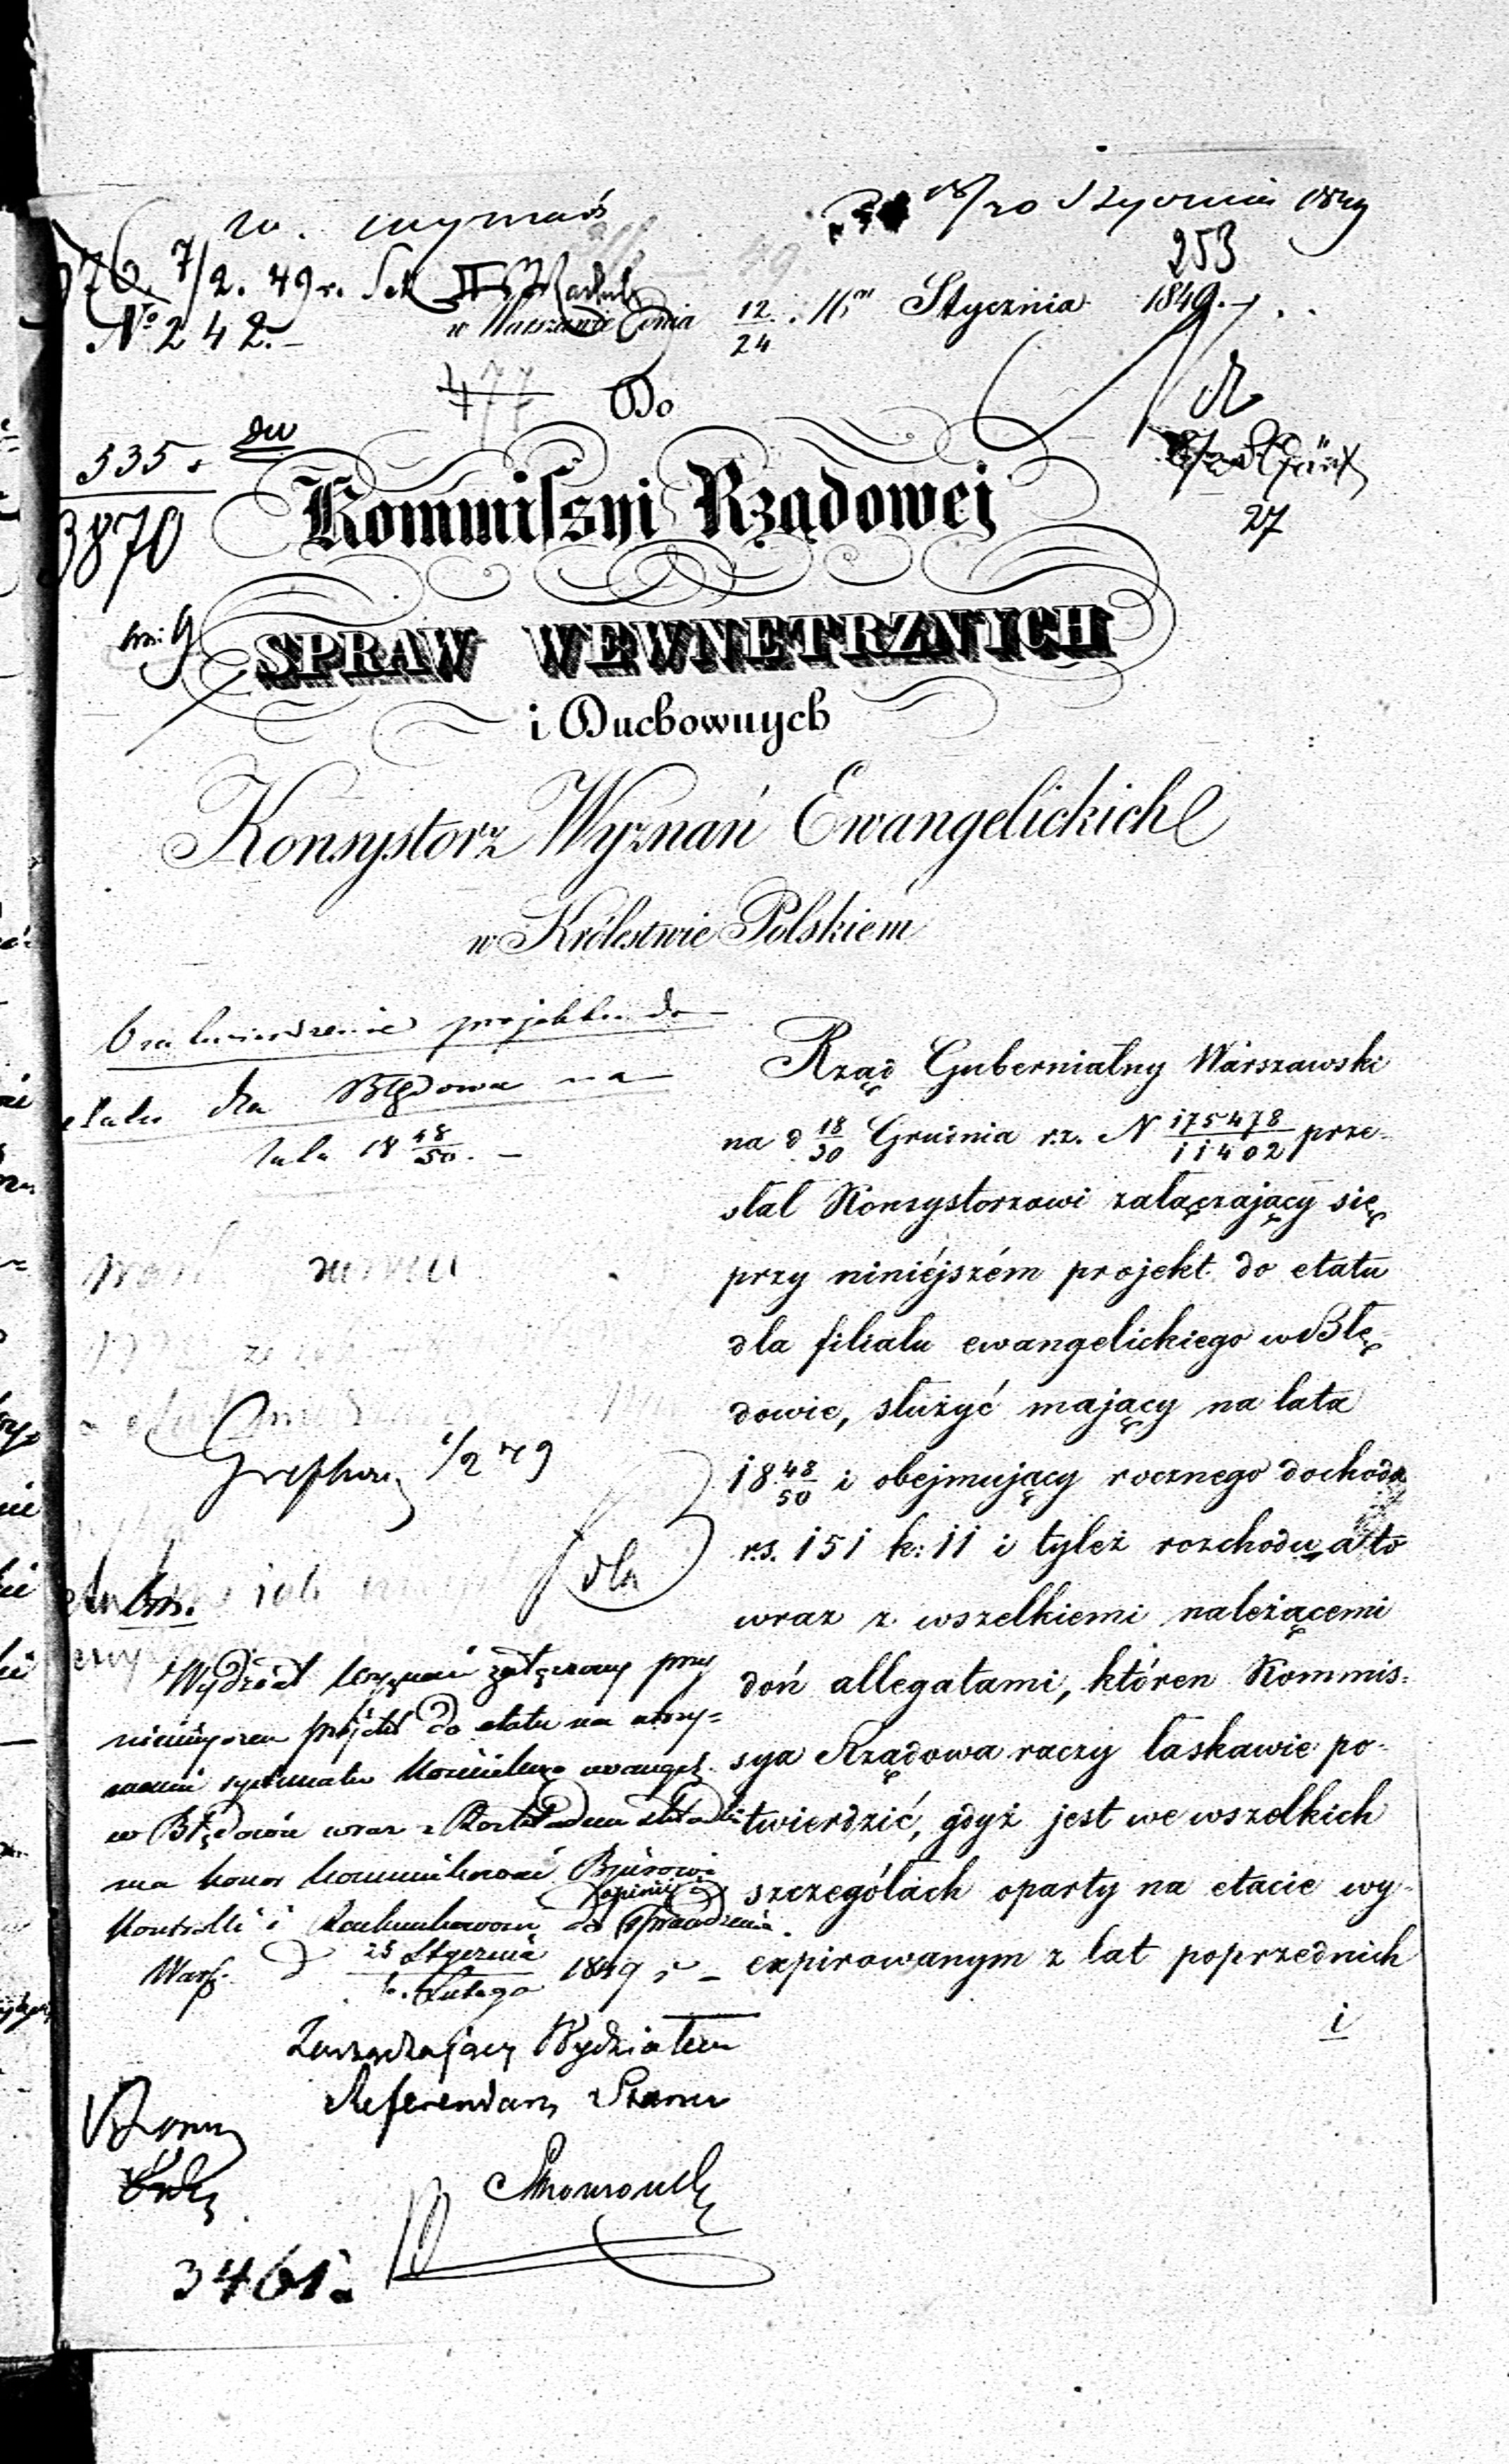 w. wyznań
18/20 Stycznia 1849
253
7/2. 49 r. Sek
№ 242.
w Warszawie dnia 12/24 Stycznia 1849.
477
Do
535.
3870
27
Kommissyi Rządowej
SPRAW WEWNĘTRZNYCH
i Duchownych
Konsystorz Wyznań Ewangelickich
w Królestwie Polskiem
projektu do
etatu dla Błędowa na
lata 18 48/50.
Rząd Gubernialny Warszawski
na d 18/30 Grudnia r.z. N 175478/11402 prze-
słał Konsystorzowi załączający się
przy niniéjszém projekt do etatu
dla filiału ewangelickiego w Błę-
dowie, służyć mający na lata
18 48/50 i obejmujący rocznego dochodu
r.s. 151 k: 11 i tyleż rozchodu, a to
wraz z wszelkiemi należącemi
doń allegatami, któren Kommis-
sya Rządowa raczy łaskawie po-
twierdzić, gdyż jest we wszelkich
szczegółach oparty na etacie wy-
expirowanym z lat poprzednich
i
1/2 49
dla
Wydział Wyznań załączony przy
niniejszem projekt do etatu na utrzy-
manie systematu Kościelnego ewangel.
w Błędowie wraz z Rozkładem składki
ma honor kommunikować Bjurowi
Kontrolli i Rachunkowem do sprawdzenia
i opinii
Warsz. d 25 Stycznia/6. Lutego 1849 r.
Zarządzający Wydziałem
Referendarz Stanu
3461.